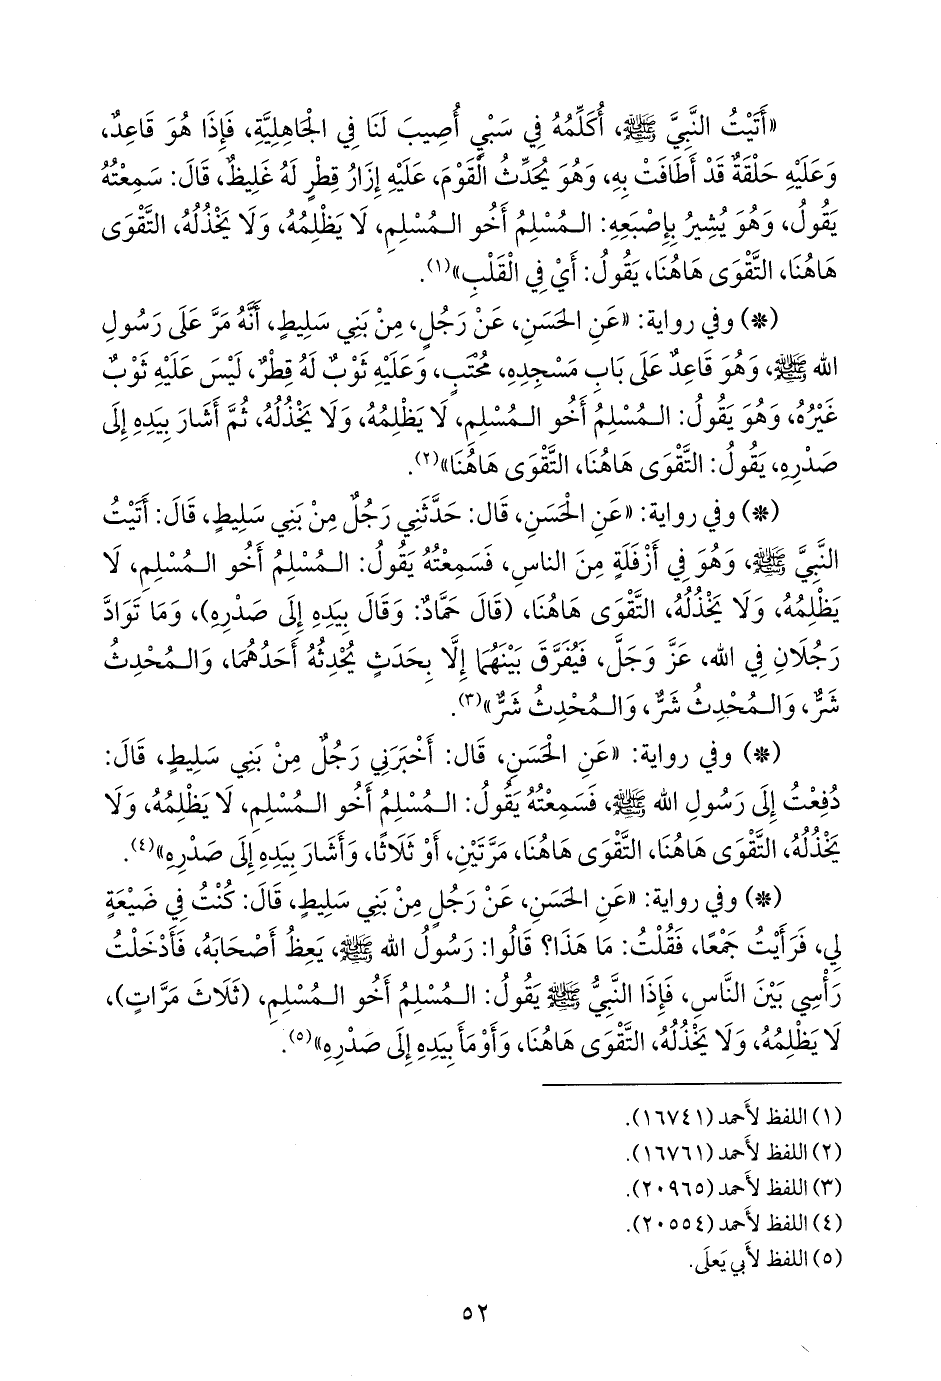 «أَتَيْتُ النَّبِيَّ ﷺ، أُكَلِّمُهُ فِي سَبْيٍ أُصِيبَ لَنَا فِي الْجَاهِلِيَّةِ، فَإِذَا هُوَ قَاعِدٌ،
وَعَلَيْهِ حَلْقَةٌ قَدْ أَطَافَتْ بِهِ، وَهُوَ يُحَدِّثُ الْقَوْمَ، عَلَيْهِ إِزَارُ قِطْرٍ لَهُ غَلِيظٌ، قَالَ: سَمِعْتُهُ
يَقُولُ، وَهُوَ يُشِيرُ بِإِصْبَعِهِ: الـمُسْلِمُ أَخُو الـمُسْلِمِ، لَا يَظْلِمُهُ، وَلَا يَخْذُلُهُ، التَّقْوَى
هَاهُنَا، التَّقْوَى هَاهُنَا، يَقُولُ: أَيْ فِي الْقَلْبِ»(١).
(*) وفي رواية: «عَنِ الحَسَنِ، عَنْ رَجُلٍ، مِنْ بَنِي سَلِيطٍ، أَنَّهُ مَرَّ عَلَى رَسُولِ
الله ﷺ، وَهُوَ قَاعِدٌ عَلَى بَابِ مَسْجِدِهِ، مُحْتَبٍ، وَعَلَيْهِ ثَوْبٌ لَهُ قِطْرٌ، لَيْسَ عَلَيْهِ ثَوْبٌ
غَيْرُهُ، وَهُوَ يَقُولُ: الـمُسْلِمُ أَخُو الـمُسْلِمِ، لَا يَظْلِمُهُ، وَلَا يَخْذُلُهُ، ثُمَّ أَشَارَ بِيَدِهِ إِلَى
صَدْرِهِ، يَقُولُ: التَّقْوَى هَاهُنَا، التَّقْوَى هَاهُنَا»(٢).
(*) وفي رواية: «عَنِ الْحَسَنِ، قَالَ: حَدَّثَنِي رَجُلٌ مِنْ بَنِي سَلِيطٍ، قَالَ: أَتَيْتُ
النَّبِيَّ ﷺ، وَهُوَ فِي أَزْفَلَةٍ مِنَ الناسِ، فَسَمِعْتُهُ يَقُولُ: الـمُسْلِمُ أَخُو الـمُسْلِمِ، لَا
يَظْلِمُهُ، وَلَا يَخْذُلُهُ، التَّقْوَى هَاهُنَا، (قَالَ حَمَّادٌ: وَقَالَ بِيَدِهِ إِلَى صَدْرِهِ)، وَمَا تَوَادَّ
رَجُلَانِ فِي الله، عَزَّ وَجَلَّ، فَيُفَرَّقَ بَيْنَهُمَا إِلَّا بِحَدَثٍ يُحْدِثُهُ أَحَدُهُمَا، وَالـمُحْدِثُ
شَرٌّ، وَالـمُحْدِثُ شَرٌّ، وَالـمُحْدِثُ شَرٌّ»(٣).
(*) وفي رواية: «عَنِ الْحَسَنِ، قَالَ: أَخْبَرَنِي رَجُلٌ مِنْ بَنِي سَلِيطٍ، قَالَ:
دُفِعْتُ إِلَى رَسُولِ الله ﷺ، فَسَمِعْتُهُ يَقُولُ: الـمُسْلِمُ أَخُو الـمُسْلِمِ، لَا يَظْلِمُهُ، وَلَا
يَخْذُلُهُ، التَّقْوَى هَاهُنَا، التَّقْوَى هَاهُنَا، مَرَّتَيْنِ، أَوْ ثَلَاثًا، وَأَشَارَ بِيَدِهِ إِلَى صَدْرِهِ»(٤).
(*) وفي رواية: «عَنِ الحَسَنِ، عَنْ رَجُلٍ مِنْ بَنِي سَلِيطٍ، قَالَ: كُنْتُ فِي ضَيْعَةٍ
لِي، فَرَأَيْتُ جَمْعًا، فَقُلْتُ: مَا هَذَا؟ قَالُوا: رَسُولُ الله ﷺ، يَعِظُ أَصْحَابَهُ، فَأَدْخَلْتُ
رَأْسِي بَيْنَ النَّاسِ، فَإِذَا النَّبِيُّ ﷺ يَقُولُ: الـمُسْلِمُ أَخُو الـمُسْلِمِ، (ثَلَاثَ مَرَّاتٍ)،
لَا يَظْلِمُهُ، وَلَا يَخْذُلُهُ، التَّقْوَى هَاهُنَا، وَأَوْمَأَ بِيَدِهِ إِلَى صَدْرِهِ»(٥).
(١) اللفظ لأَحمد (١٦٧٤١).
(٢) اللفظ لأَحمد (١٦٧٦١).
(٣) اللفظ لأَحمد (٢٠٩٦٥).
(٤) اللفظ لأَحمد (٢٠٥٥٤).
(٥) اللفظ لأَبي يَعلَى.
٥٢